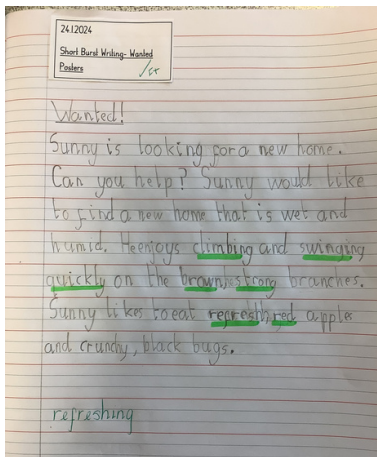 24.1.2024
Short Burst Writing- Wanted
Posters
Wanted!
Sunny is looking for a new home.
Can you help? Sunny would like
to find a new home that is wet and
humid. He enjoys climbing and swinging
quickly on the brown, strong branches.
Sunny likes to eat refresth, red apples
and crunchy, black bugs.
refreshing